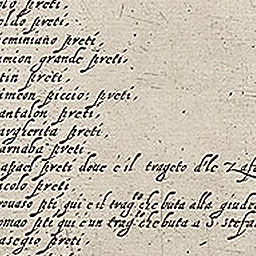 olo preti,
oldo preti,
eminiano preti,
imion grande preti,
tin preti,
imeon piccio: preti,
antalon preti,
argherita preti,
arnaba preti,
afael preti doue è il trageto d'lle Zafa
icolo preti,
rouaso pti qui è il trag.º che buta alla giude
omao pti qui è un trag.º che buta a S. stefa
asegio preti,